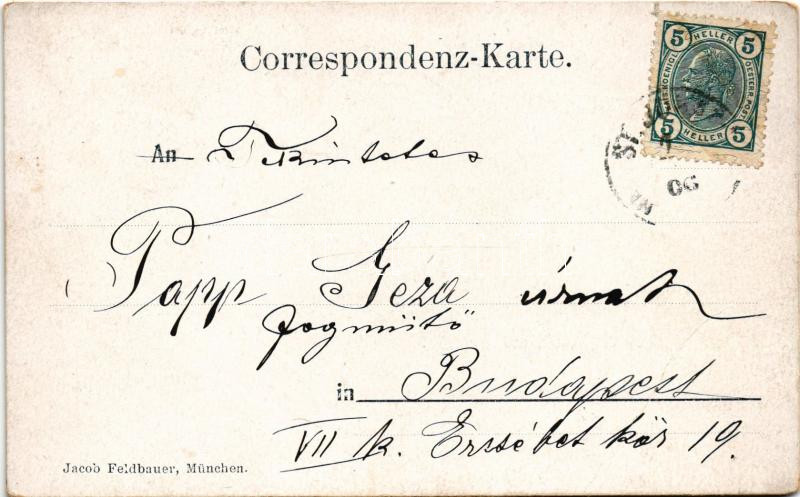 Correspondenz-Karte.
5 HELLER 5
OESTERR. POST
5 HELLER 5
ST.
06
An Tekintetes
Papp Géza úrnak
fogmütő
in Budapest
VII k. Erzsébet kör 19.
Jacob Feldbauer, München.